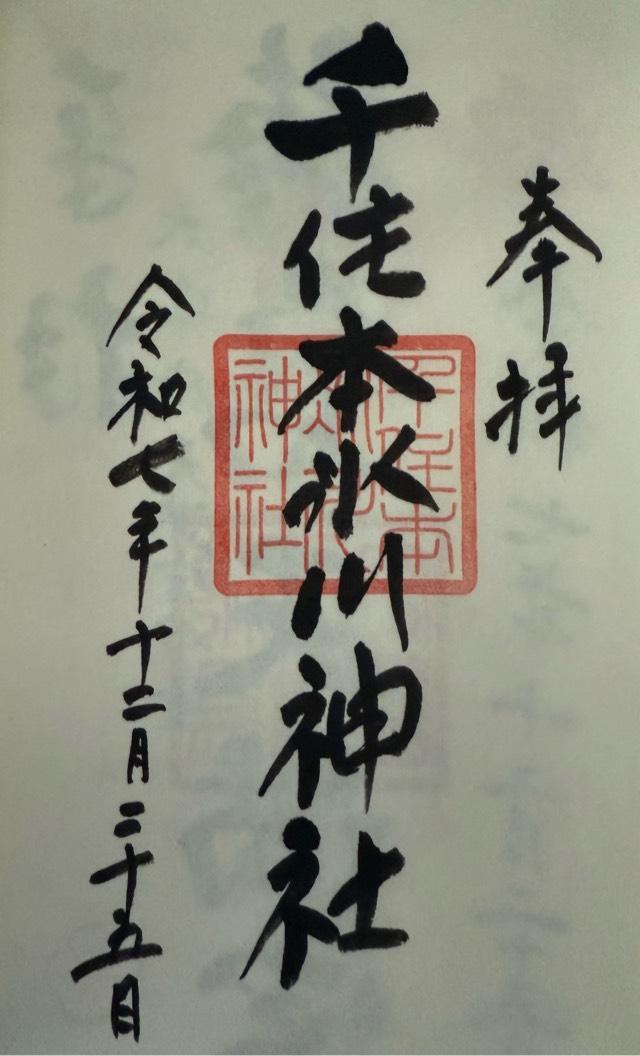 奉拝
千住本氷川神社
千住本
氷川
神社
令和七年十二月二十五日